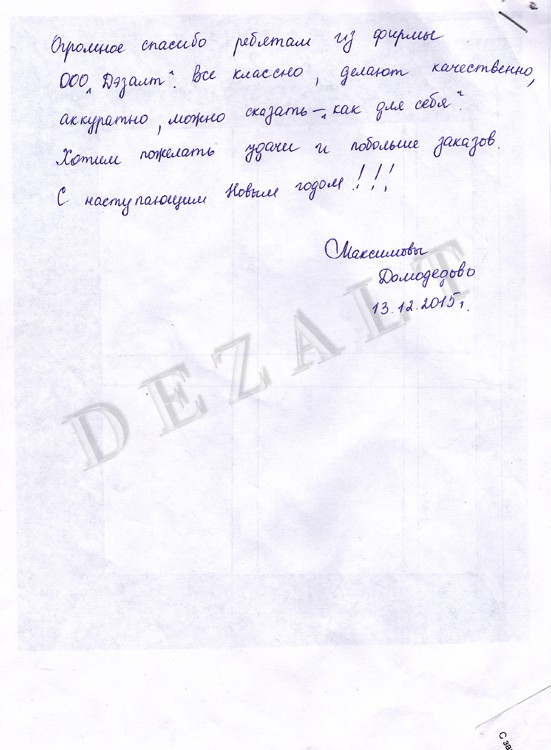 Огромное спасибо ребятам из фирмы
ООО „Дэзалт“. Все классно, делают качественно,
аккуратно, можно сказать – „как для себя“.
Хотим пожелать удачи и побольше заказов.
С наступающим Новым годом!!!
Максимовы
Домодедово
13.12.2015г.
DEZALT